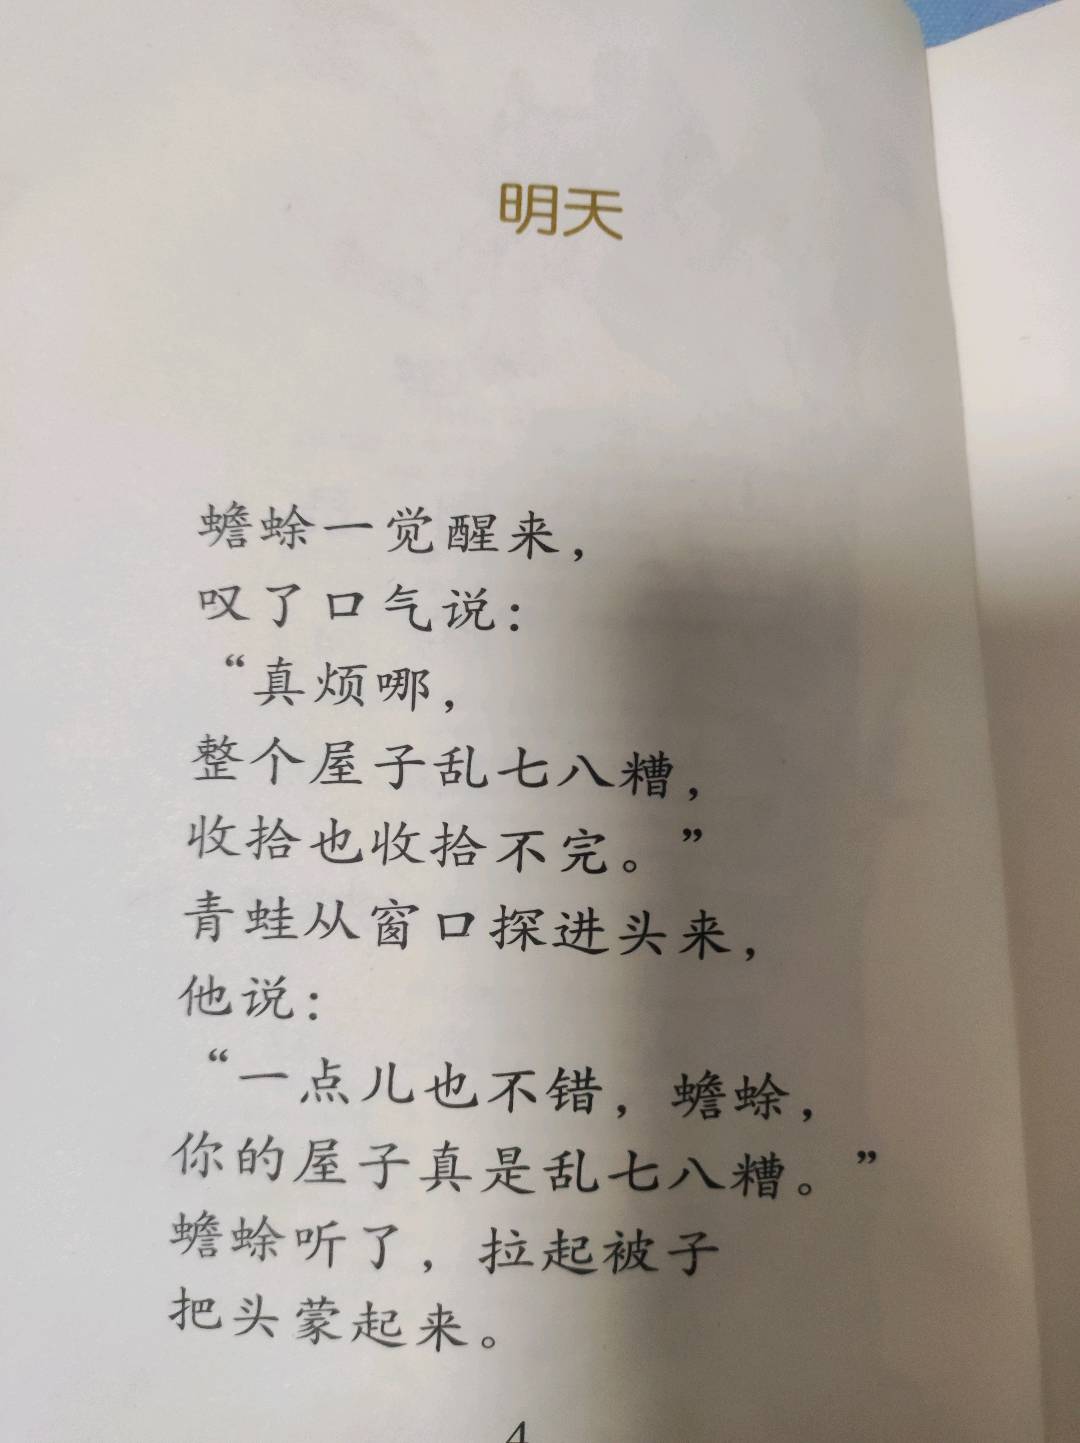 明天
蟾蜍一觉醒来，
叹了口气说：
“真烦哪，
整个屋子乱七八糟，
收拾也收拾不完。”
青蛙从窗口探进头来，
他说：
“一点儿也不错，蟾蜍，
你的屋子真是乱七八糟。”
蟾蜍听了，拉起被子
把头蒙起来。
4